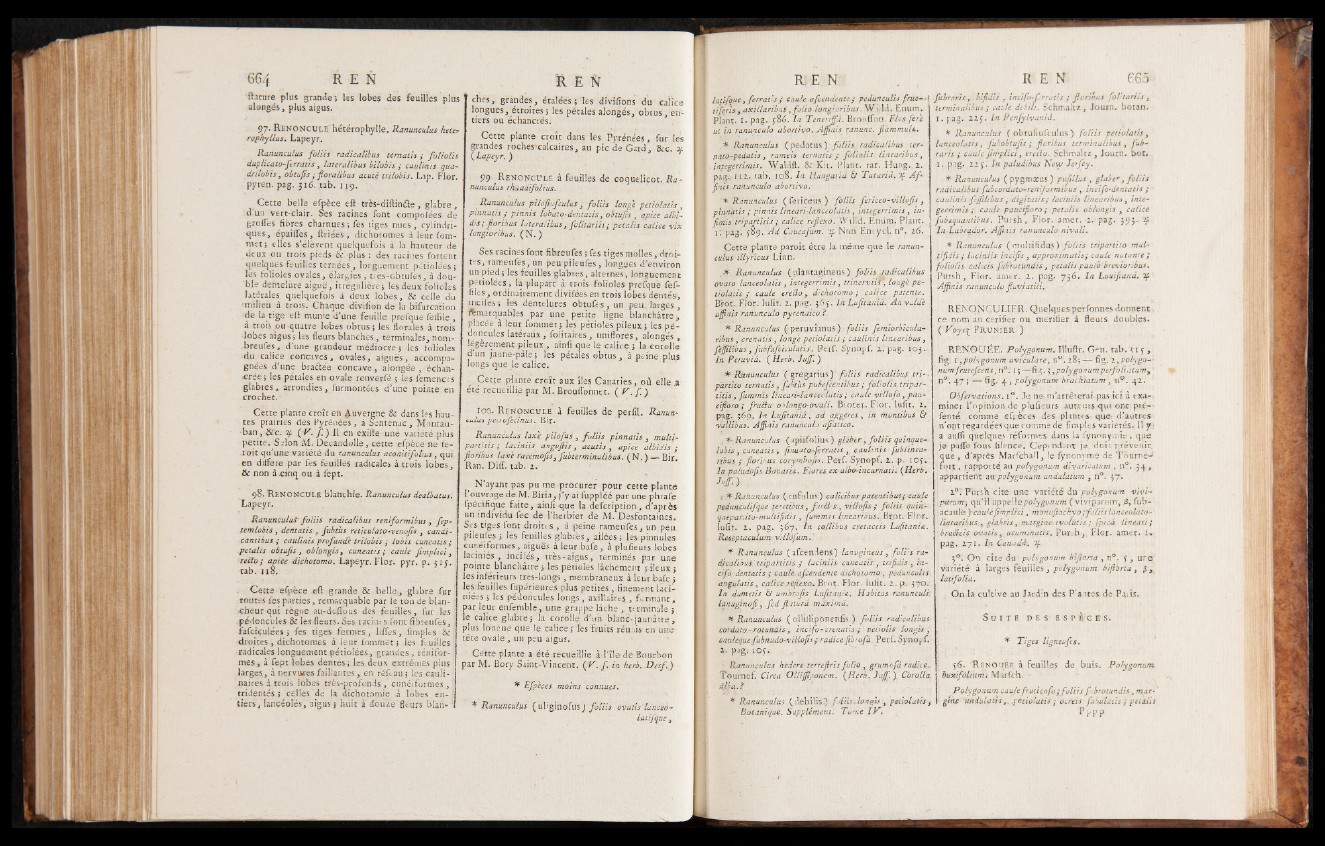 664 R E N
stature plus grande; les lobes des feuilles plus
alongés, plus aigus.
97. RENONCULE hétérophylle. Ranunculus hete-
rophyllus. Lapeyr.
Ranunculus foliis radicalibus ternatis; foliolis
duplicato-serratis, lateralibus bilobis; caulinis qua-
drilobis, obtusis; floralibus acutè trilobis. Lap. Flor.
pyren. pag. 316. tab. 119.
Cette belle espèce est très-distincte, glabre,
d'un vert-clair. Ses racines sont composées de
grosses fibres charnues; ses tiges nues, cylindri-
ques, épaisses, striées, dichotomes à leur som-
met; elles s'élèvent quelquefois à la hauteur de
deux ou trois pieds & plus: des racines sortent
quelques feuilles ternées, longuement pétiolées;
les folioles ovales, élargies, très-obtuses, à dou-
ble dentelure aiguë, irrégulière; les deux folioles
latérales quelquefois à deux lobes, & celle du
milieu à trois. Chaque division de la bifurcation
de la tige est munie d'une feuille presque sessile,
à trois ou quatre lobes obtus; les florales à trois
lobes aigus; les fleurs blanches, terminales, nom-
breuses, d'une grandeur médiocre; les folioles
du calice concaves, ovales, aiguës, accompa-
gnées d'une bractée concave, alongée, échan-
crée; les pétales en ovale renversé; les semences
glabres, arrondies, surmontées d'une pointe en
crochet.
Cette plante croît en Auvergne & dans les hau-
tes prairies des Pyrénées, à Sentenac, Montau-
ban, &c. ♃ (V. s.) Il en existe une variété plus
petite. Selon M. Decandolle, cette espèce ne se-
roit qu'une variété du ranunculus aconitifolius, qui
en diffère par ses feuilles radicales à trois lobes,
& non à cinq ou à sept.
98. RENONCULE blanchie. Ranunculus dealbatus.
Lapeyr.
Ranunculus foliis radicalibus reniformibus, sep-
temlobis, dentatis, subtùs reticulato-venosis, candi-
cantibus; caulinis profundè trilobis; lobis cuneatis;
petalis obtusis, oblongis, cuneatis; caule simplici,
recto; apice dichotomo. Lapeyr. Flor. pyr. p. 315.
tab. 118.
Cette espèce est grande & belle, glabre sur
toutes ses parties, remarquable par le ton de blan-
cheur qui règne au-dessous des feuilles, sur les
pédoncules & les fleurs. Ses racines sont fibreuses,
fasciculées; ses tiges fermes, lisses, simples &
droites, dichotomes à leur sommet; les feuilles
radicales longuement pétiolées, grandes, rénifor-
mes, à sept lobes dentés; les deux extrêmes plus
larges, à nervures saillantes, en réseau; les cauli-
naires à trois lobes très-profonds, cunéiformes,
tridentés; celles de la dichotomie à lobes en-
tiers, lancéolés, aigus; huit à douze fleurs blan-
R E N
ches, grandes, étalées; les divisions du calice
longues, étroites; les pétales alongés, obtus, en-
tiers ou échancrés.
Cette plante croît dans les Pyrénées, sur les
grandes roches calcaires, au pic de Gard, &c. ♃
(Lapeyr.)
99. RENONCULE à feuilles de coquelicot. Ra-
nunculus rhoeadifolius.
Ranunculus piloso-sculus, foliis longè petiolatis,
pinnatis; pinnis lobato-dentatis, obtusis, apice albi-
dis; floribus lateralibus, solitariis; petalis calice vix
longioribus. (N.)
Ses racines sont fibreuses; ses tiges molles, droi-
tes, rameuses, un peu pileuses, longues d'environ
un pied; les feuilles glabres, alternes, longuement
pétiolées, la plupart à trois folioles presque ses-
siles, ordinairement divisées en trois lobes dentés,
incisés; les dentelures obtuses, un peu larges,
remarquables par une petite ligne blanchâtre,
placée à leur sommet; les pétioles pileux; les pé-
doncules latéraux, solitaires, uniflores, alongés,
légèrement pileux, ainsi que le calice; la corolle
d'un jaune-pâle; les pétales obtus, à peine plus
longs que le calice.
Cette plante croît aux îles Canaries, où elle a
été recueillie par M. Broussonnet. (V. s.)
100. RENONCULE à feuilles de persil. Ranun-
culus petroselinus. Bir.
Ranunculus laxè pilosus, foliis pinnatis, multi-
partitis; laciniis angustis, acutis, apice albidis;
floribus laxè racemosis, subterminalibus. (N.) — Bir.
Ran. Diss. tab. 2.
N'ayant pas pu me procurer pour cette plante
l'ouvrage de M. Biria, j'y ai suppléé par une phrase
spécifique faite, ainsi que la description, d'après
un individu sec de l'herbier de M. Desfontaines.
Ses tiges sont droites, à peine rameuses, un peu
pileuses; les feuilles glabres, ailées; les pinnules
cunéiformes, aiguës à leur base, à plusieurs lobes
laciniés, incisés, très-aigus, terminés par une
pointe blanchâtre; les pétioles lâchement pileux;
les inférieurs très-longs, membraneux à leur base;
les feuilles supérieures plus petites, finement laci-
niées; les pédoncules longs, axillaires, formant,
par leur ensemble, une grappe lâche, terminale;
le calice glabre; la corolle d'un blanc-jaunâtre,
plus longue que le calice; les fruits réunis en une
tête ovale, un peu aiguë.
Cette plante a été recueillie à l'île de Bourbon
par M. Bory Saint-Vincent. (V. s. in herb. Desf.)
* Espèces moins connues.
* Ranunculus (uliginosus) foliis ovatis lanceo-
latisque,
R E N
latisque, serratis; caule ascendente; pedunculis fruc-
tiferis, axillaribus, folio longioribus. Willd. Enum.
Plant. 1. pag. 586. In Teneriffâ. Brousson. Flos ferè
ut in ranunculo abortivo. Affinis ranunc. flammulæ.
* Ranunculus (pedatus) foliis radicalibus ter-
nato-pedatis, rameis ternatis; foliolis linearibus,
integerrimis. Waldst. & Kit. Plant. rar. Hung. 2.
pag. 112. tab. 108. In Hungariâ & Tatariâ. ♃ Af-
finis ranunculo abortivo.
* Ranunculus (sericeus) foliis sericeo-villosis,
pinnatis; pinnis lineari-lanceolatis, integerrimis, in-
fimis tripartitis; calice reflexo. Willd. Enum. Plant.
1. pag. 589. Ad Caucasum. ♃ Non Encycl. n°. 26.
Cette plante paroît être la même que le ranun-
culus illyricus Linn.
* Ranunculus (plantagineus) foliis radicalibus
ovato lanceolatis, integerrimis, trinerviis, longè pe-
tiolatis; caule erecto, dichotomo; calice patente.
Brot. Flor. lusit. 2. pag. 365. In Lusitaniâ. An valdè
affinis ranunculo pyrenaico?
* Ranunculus (peruvianus) foliis semiorbicula-
ribus, crenatis, longè petiolatis; caulinis linearibus,
sessilibus, subfasciculatis. Pers. Synops. 2. pag. 103.
In Peruviâ. (Herb. Juss.)
* Ranunculus (gregarius) foliis radicalibus tri-
partito ternatis, subtùs pubescentibus; foliolis tripar-
titis, summis lineari-lanceolatis; caule villoso, pau-
cifloro; fructu oblongo-ovali. Broter. Flor. lusit. 2.
pag. 369. In Lusitaniâ, ad aggeres, in montibus &
vallibus. Affinis ranunculo asiatico.
* Ranunculus (apiifolius) glaber, foliis quinque-
lobis, cuneatis, sinuato-serratis, caulinis sublinea-
ribus; floribus corymbosis. Pers. Synops. 2. p. 105.
In paludosis Bonariæ. Flores ex albo-incarnati. (Herb.
Juss.)
* Ranunculus (tuberosus) calicibus patentibus; caule
pedunculisque teretibus, strictis, villosis; foliis quin-
quepartito-multifidis, summis linearibus. Brot. Flor.
lusit. 2. pag. 367. In collibus cretaceis Lusitaniæ.
Receptaculum villosum.
* Ranunculus (ascendens) lanuginosus, foliis ra-
dicalibus tripartitis; laciniis cuneatis, trifidis, in-
ciso dentatis; caule ascendente dichotomo, pedunculis
angulatis, calice reflexo. Brot. Flor. lusit. 2. p. 370.
In dumetis & umbrosis Lusitaniæ. Habitus ranunculi
lanuginosi, sed staturâ maximâ.
* Ranunculus (olissiponensis) foliis radicalibus
cordato-rotundis, inciso-crenatis; petiolis longis,
cauleque subnudo-villosis; radice fibrosâ. Pers. Synops.
2. pag. 105.
Ranunculus hederæ terrestris folio, grumosâ radice.
Tournef. Circa Olissiponem. (Herb. Juss.) Corolla
alba?
* Ranunculus (debilis) foliis longis, petiolatis,
Botanique. Supplément. Tome IV.
R E N 665
sublyratis, bifidis, inciso-serratis; floribus solitariis,
terminalibus; caule debili. Schmaltz, Journ. botan.
1. pag. 225. In Pensylvaniâ.
* Ranunculus (obtusiusculus) foliis petiolatis,
lanceolatis, subobtusis; floribus terminalibus, sub-
raris; caule simplici, erecto. Schmaltz, Journ. bot.
1. pag. 225. In paludibus New Jersey.
* Ranunculus (pygmæus) pusillus, glaber, foliis
radicalibus subcordato-reniformibus, inciso-dentatis;
caulinis sessilibus, digitatis; laciniis linearibus, inte-
gerrimis; caule paucifloro; petalis oblongis, calice
subæqualibus. Pursh, Flor. amer. 2. pag. 393. ♃
In Labrador. Affinis ranunculo nivali.
* Ranunculus (multifidus) foliis tripartito mul-
tifidis; laciniis incisis, approximatis; caule natante;
foliolis calicis subrotundis, petalis paulò brevioribus.
Pursh, Flor. amer. 2. pag. 736. In Louisianâ. ♃
Affinis ranunculo fluviatili.
RENONCULIER. Quelques personnes donnent
ce nom au cerisier ou merisier à fleurs doubles.
(Voyez PRUNIER.)
RENOUÉE. Polygonum. Illustr. Gen. tab. 315,
fig. 1, polygonum aviculare, n°. 28; — fig. 2, polygo-
num frutescens, n°. 15; — fig. 3, polygonum perfoliatum,
n°. 47; — fig. 4, polygonum brachiatum, n°. 42.
Observations. 1°. Je ne m'arrêterai pas ici à exa-
miner l'opinion de plusieurs auteurs qui ont pré-
senté comme espèces des plantes que d'autres
n'ont regardées que comme de simples variétés. Il y
a aussi quelques réformes dans la synonymie, que
je passe sous silence. Cependant je dois prévenir
que, d'après Marschall, le synonyme de Tourne-
fort, rapporté au polygonum divaricatum, n°. 34,
appartient au polygonum undulatum, n°. 37.
2°. Pursh cite une variété du polygonum vivi-
parum, qu'il appelle polygonum (viviparum, β, sub-
acaule) caule simplici, monostachyo; foliis lanceolato-
linearibus, glabris, margine revolutis; spicâ lineari;
bracteis ovatis, acuminatis. Pursh, Flor. amer. 1.
pag. 271. In Canadâ. ♃
3°. On cite du polygonum bistorta, n°. 5, une
variété à larges feuilles, polygonum bistorta, β,
latifolia.
On la cultive au Jardin des Plantes de Paris.
SUITE DES ESPÈCES.
* Tiges ligneuses.
56. RENOUÉE à feuilles de buis. Polygonum
buxifolium. Marsch.
Polygonum caule fruticoso; foliis subrotundis, mar-
gine undulatis, petiolatis; ocreis subulatis; petalis
P p p p